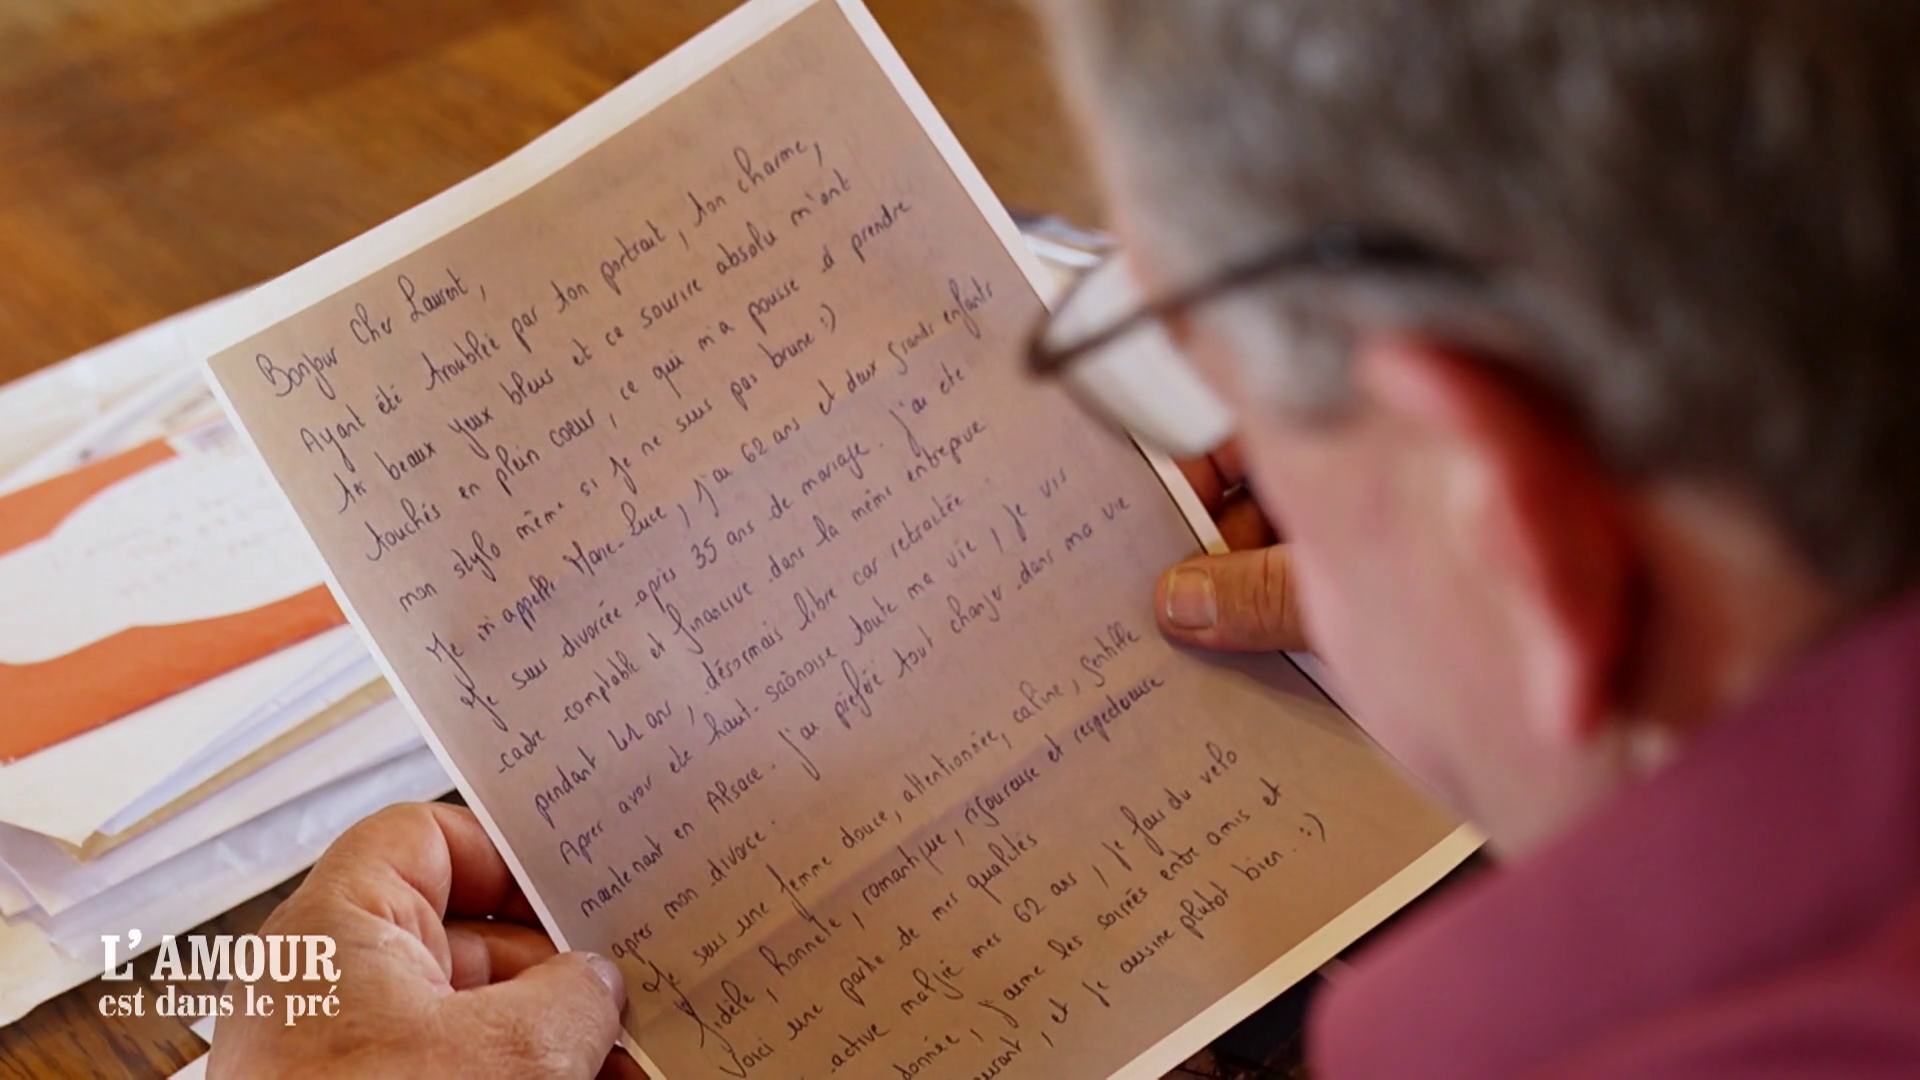 Bonjour Cher Laurent,
Ayant été troublée par ton portrait, ton charme,
tes beaux yeux bleus et ce sourire absolu m'ont
touchés en plein coeur, ce qui m'a poussé à prendre
mon stylo même si je ne suis pas brune :)
Je m'appelle Marie-Luce, j'ai 62 ans et deux grands enfants
Je suis divorcée après 35 ans de mariage. J'ai été
cadre comptable et financière dans la même entreprise
pendant 41 ans, désormais libre car retraitée.
Après avoir été haut-saônoise toute ma vie, je vis
maintenant en Alsace. J'ai préféré tout changer dans ma vie
après mon divorce.
Je suis une femme douce, attentionnée, caline, gentille
fidèle, honnête, romantique, rigoureuse et respectueuse
Voici une partie de mes qualités
active malgré mes 62 ans, je fais du vélo
donnée, j'aime les soirées entre amis et
urant, et je cuisine plutôt bien. :)
L'AMOUR
est dans le pré